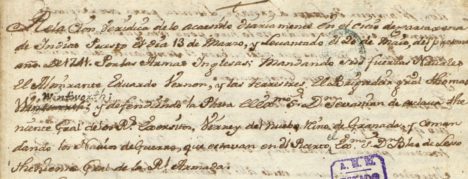 Relación Veridica de lo acaecido diariamente en el sitio de
de Indias Puesto el Dia 13 de Marzo, y Levantado el 20 de Maio del presente
año de 1741. Por las Armas Inglesas: Mandando sus fuerzas Navales
El Almirante Eduardo Vernon, y las terrestres El Brigadier gral thomas
Wintuvort: y defendiendo la Plaza El Exmo. Sr. D. Sevastian de eslava the
niente Gral de los Rs. Exercitos, Virrey del Nuebo Rino de Granada, y Coman
dando los Navios de Guerra, que estavan en el Puerto, El Exmo. Sr. D. Blas de Lesso
theniente Gral de la Rl Armada.
A. H. N.